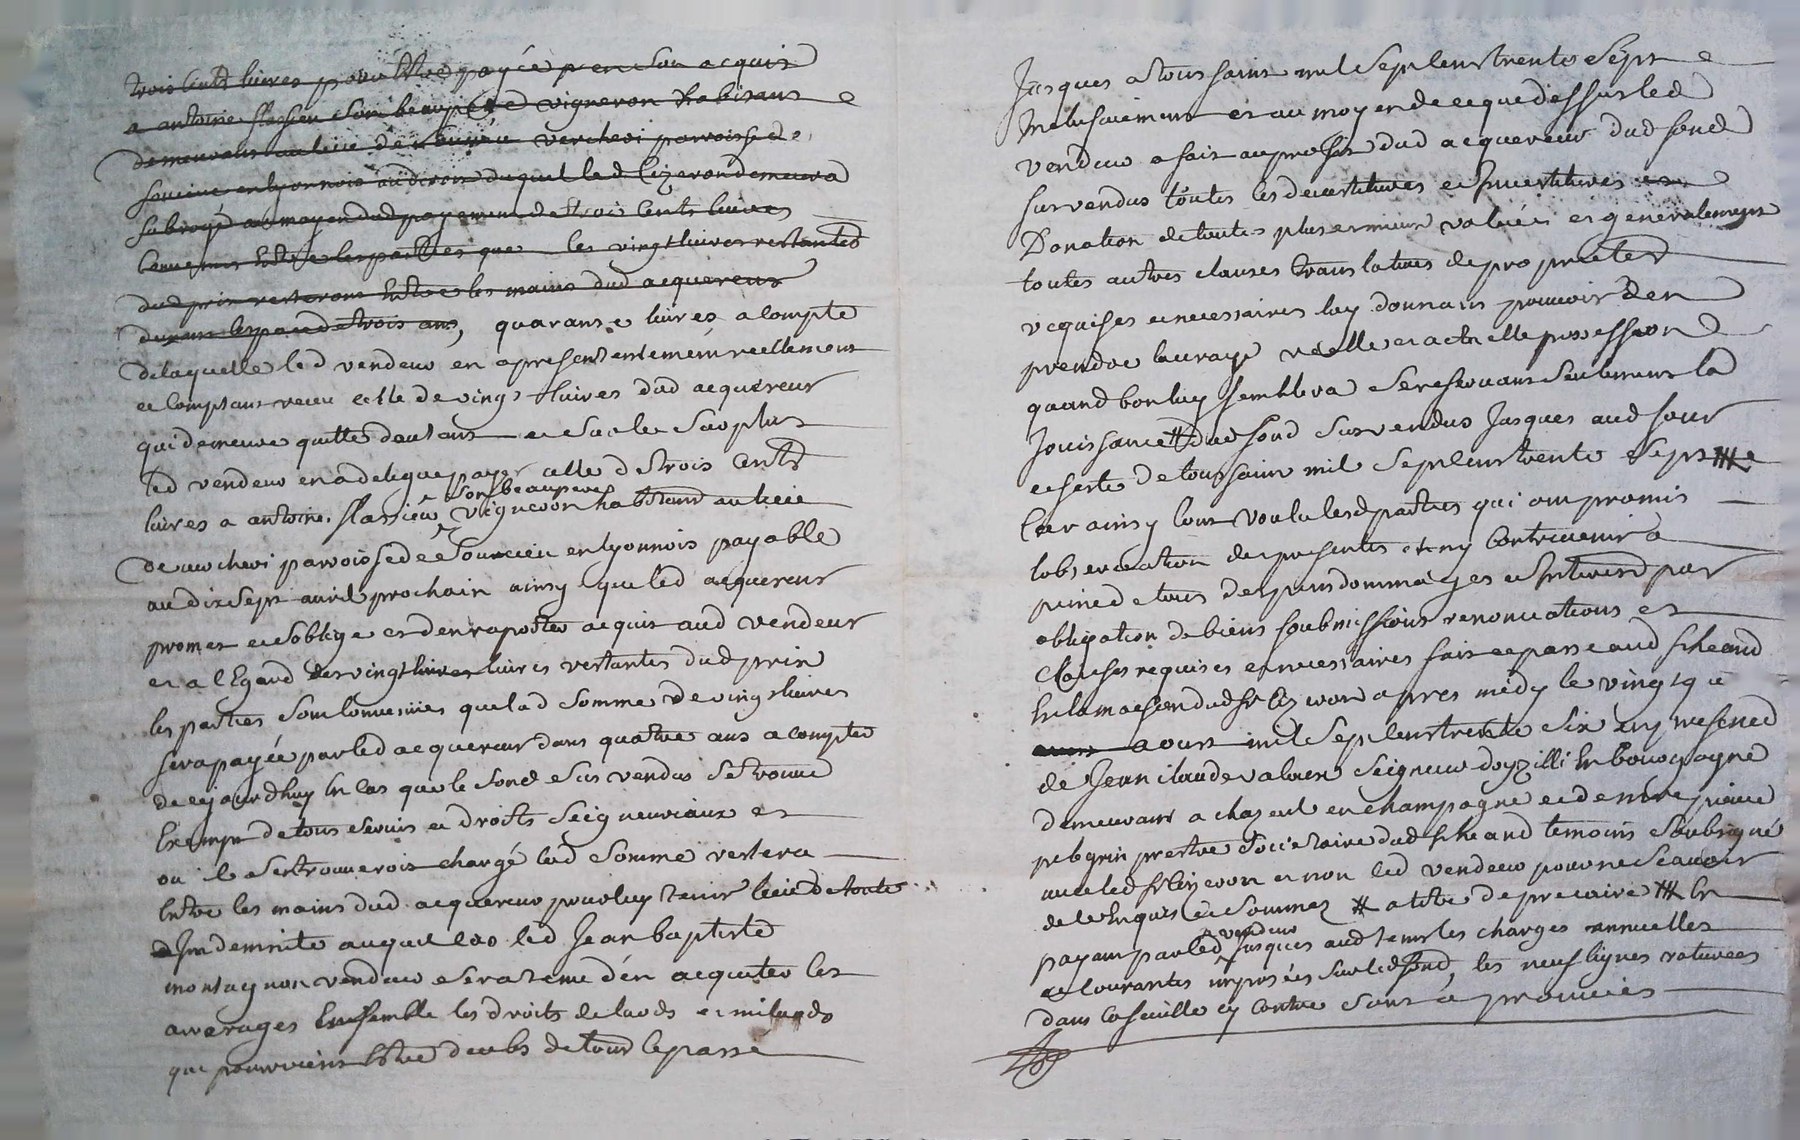 trois cents livres pour être payée en son acquis
a antoine flassieu son beaupere vigneron habitant
demeurant au lieu de verchevi parroisse de
soucieu en lyonnois au droit duquel led Cizeron demeura
subrogé au moyen dud payement de trois cents livres
convenus entre les parties que les vingt livres restantes
dud prix resteront entre les mains dud acquereur
durant lespace de trois ans, quarante livres a compte
de laquelle led vendeur en a presentement reellement
et comptant receu celle de vingt livres dud acquereur
qui demeure quitte dautant et sur le surplus
led vendeur en a delegue payer celle de trois cents
livres a antoine flassieu son beaupere vigneron habitant au lieu
de verchevi parroisse de Soucieu en lyonnois payable
au dix sept avril prochain ainsy que led acquereur
promet et soblige et den raporter acquit aud vendeur
et a lEgard des vingt livres livres restantes dud prix
les parties sont convenues que lad somme de vingt livres
sera payée par led acquereur dans quatre ans a compter
de cejourdhuy En cas que le fond sus vendu se trouve
Exempt de tous servis et droits seigneuriaux et
ou il se trouveroit chargé lad somme restera
Entre les mains dud acquereur pour luy tenir lieu de toute
Indemnité auquel cas led Jean baptiste
montagnon vendeur sera tenu d'en acquiter les
arrerages Ensemble les droits de laods et milaods
qui pourroient Estre deubs de tout le passé
Jusques a toussaint mil sept cent trente sept
Inclusivement et au moyen de ce que dessus led
vendeur a fait au profit dud acquereur dud fond
sus vendus toutes les devestitures et Investitures
Donation de toutes plus et mieux values et generalement
toutes autres clauses translatives de proprieté
requises et necessaires luy donnant pouvoir den
prendre la vraye reelle et actuelle possession
quand bon luy semblera se reservant seulement la
Jouissance # dud fond sus vendus Jusques aud Jour
et feste de toussaint mil sept cent trente sept ###
Car ainsy lont voulu lesd parties qui ont promis
lobservation des presentes et ny contrevenir a
peine de tous depens dommages et Interest par
obligation de biens soubmissions renonciations et
Clauses requises et necessaires fait et passé aud st heand
En la maison dud sr Cizeron apres midy le vingt
aoust mil sept cent trente six en presence
de Jean claude valoux Seigneur doyzilli En bourgogne
demeurant a chazeul en champagne et de mre pierre
pelegrin prestre societaire dud st heand temoins soubsigné
avec led sr Cizeron et non led vendeur pour ne scavoir
de ce Enquis et sommez # a titre de precaire ### En
payant par led vendeur Jusques aud tems les charges annuelles
et courantes imposées sur led fond, les neuf lignes raturées
dans la feuille cy contre sont a prouvées